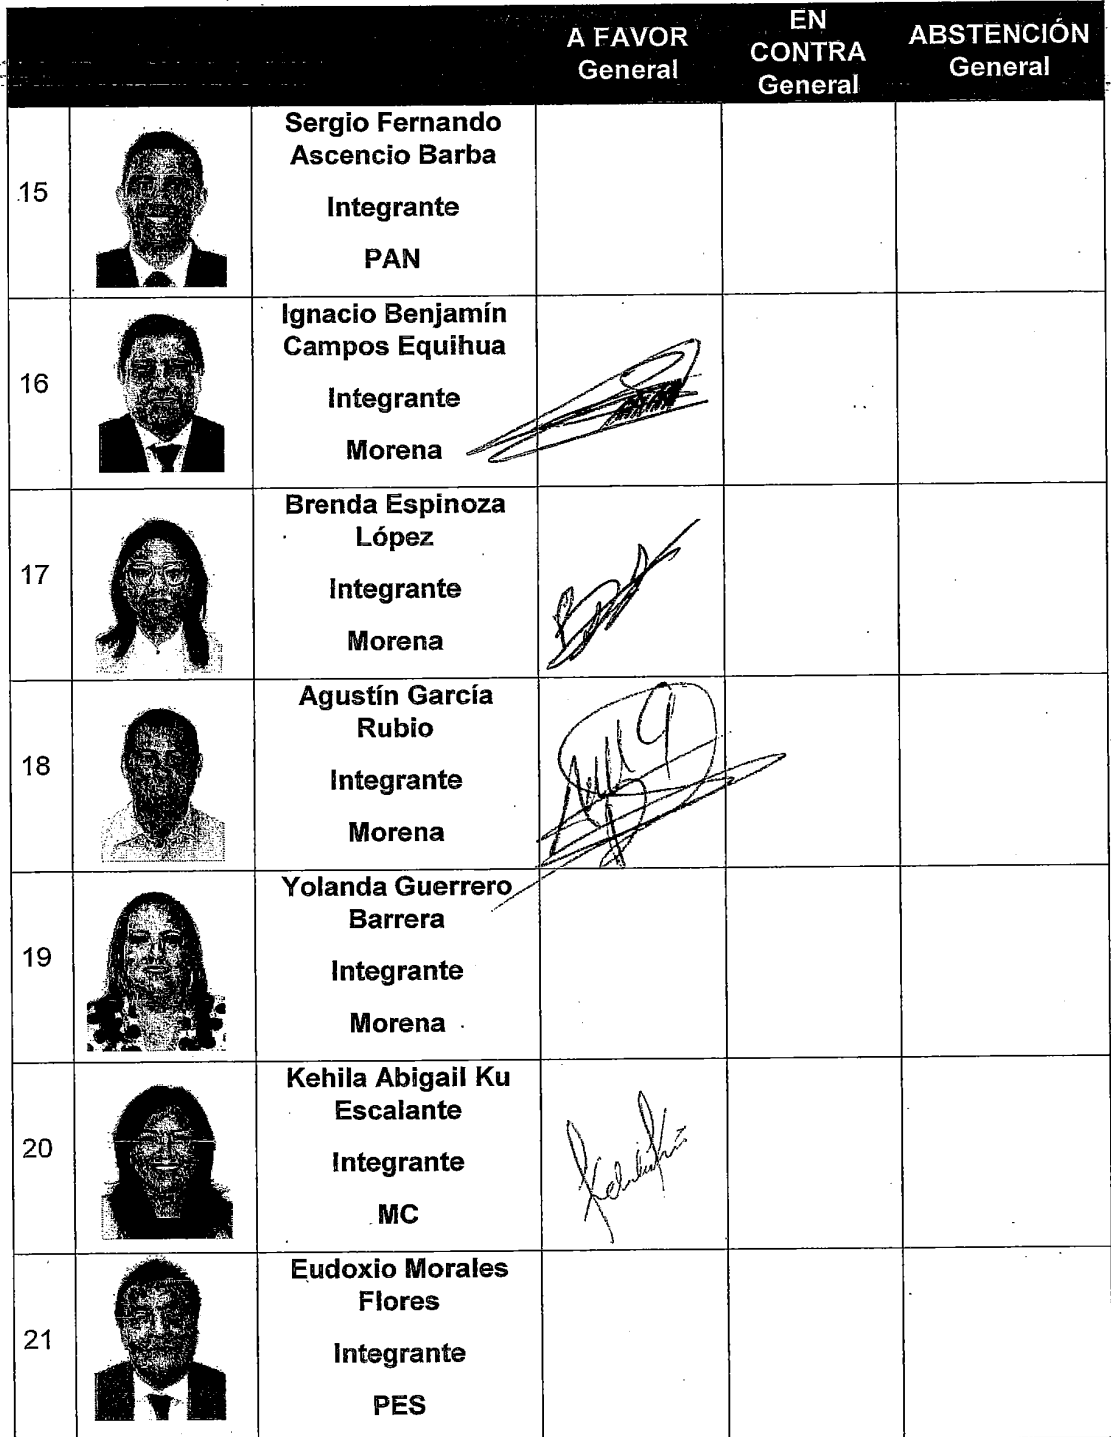 A FAVOR
General
EN
CONTRA
General
ABSTENCIÓN
General
15
Sergio Fernando
Ascencio Barba
Integrante
PAN
16
Ignacio Benjamín
Campos Equihua
Integrante
Morena
17
Brenda Espinoza
López
Integrante
Morena
18
Agustín García
Rubio
Integrante
Morena
19
Yolanda Guerrero
Barrera
Integrante
Morena
20
Kehila Abigail Ku
Escalante
Integrante
MC
21
Eudoxio Morales
Flores
Integrante
PES